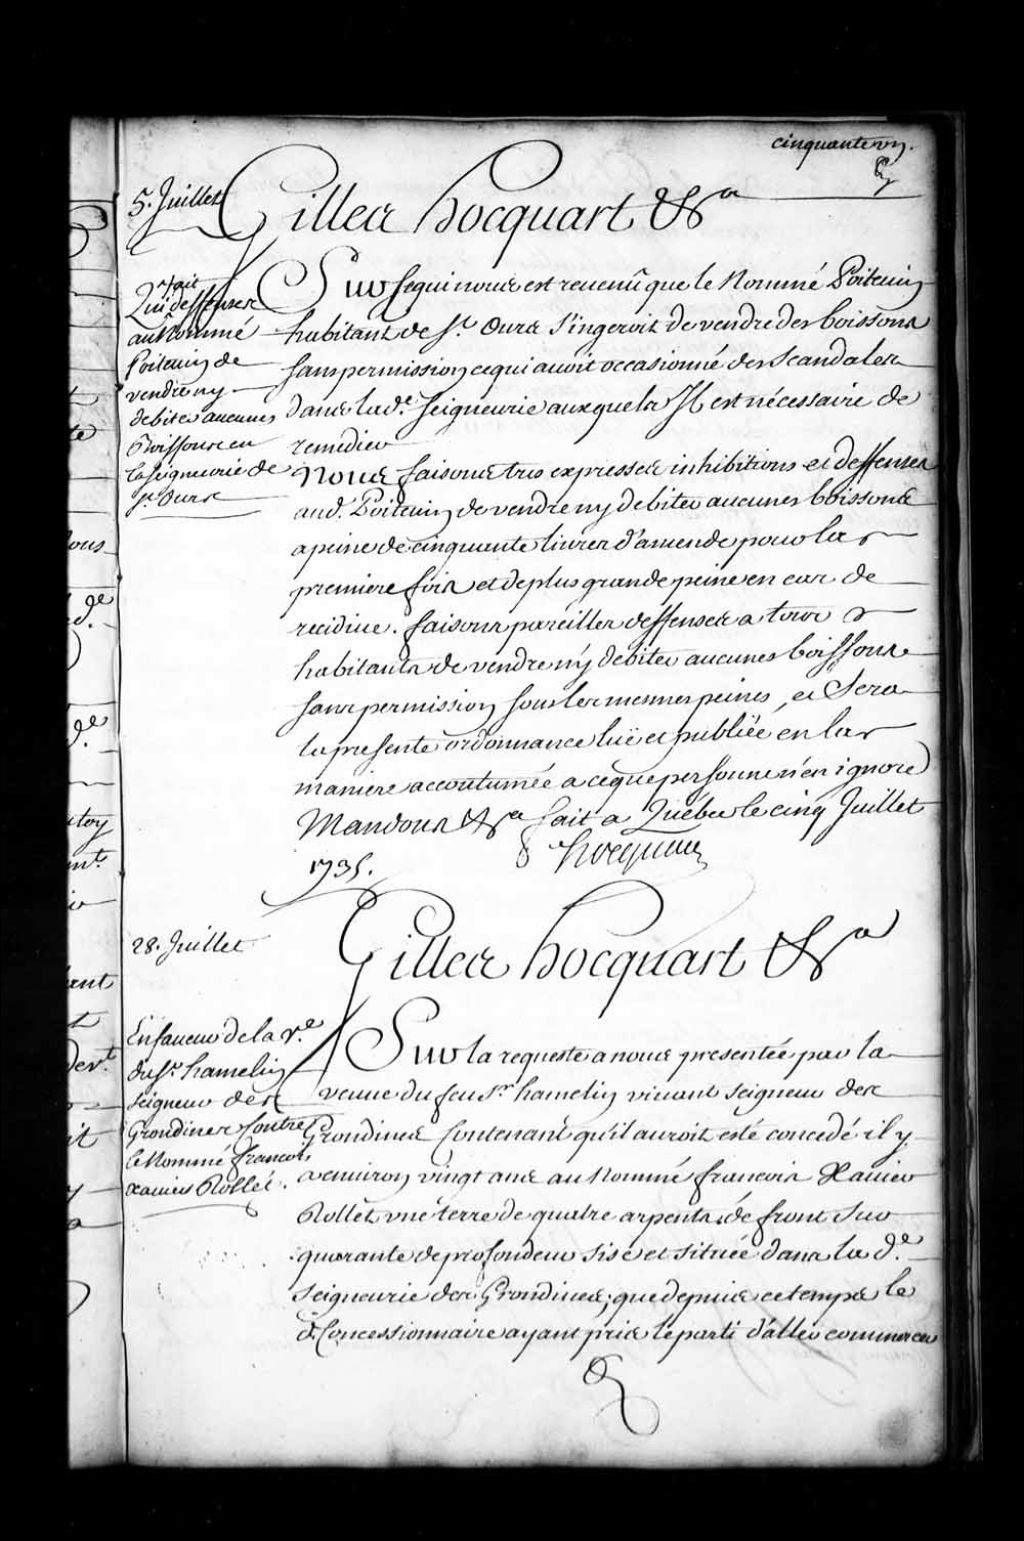 cinquante un.
5. Juillet
Gilles hocquart &a
Qui fait
deffenses
au Nommé
Poitevin de
vendre ny
debiter aucunes
Boissons en
la seigneurie de
St. Ours
Sur ce qui nous est revenû que le Nommé Poitevin
habitant de St. Ours s'ingeroit de vendre des boissons
sans permission ce qui auroit occasionné des scandales
dans lad.e Seigneurie auxquels Il est nécessaire de
remedier
Nous faisons tres expresses inhibitions et deffenses
aud. Poitevin de vendre ny debiter aucunes boissons
a peine de cinquante livres d'amende pour la
premiere fois et de plus grande peine en cas de
recidive. faisons pareilles deffenses a tous
habitants de vendre ny debiter aucunes boissons
sans permission sous les mesmes peines, et Sera
la presente ordonnance luë et publiée en la
maniere accoutumée a ce que personne n'en ignore
Mandons &a fait a Québec le cinq Juillet
1735. Hocquart
28. Juillet
Gilles hocquart &a
En faveur de la Ve.
du Sr. hamelin
seigneur des
Grondines Contre
le Nommé francois
Xavier Rollet.
Sur la requeste a nous presentée par la
veuve du feu Sr hamelin vivant seigneur des
Grondines Contenant qu'il auroit esté concedé il y
a environ vingt ans au Nommé francois Xavier
Rollet une terre de quatre arpents de front sur
quarante de profondeur sise et située dans la d.e
seigneurie des Grondines, que depuis ce temps le
d. Concessionnaire ayant pris le parti d'aller commercer